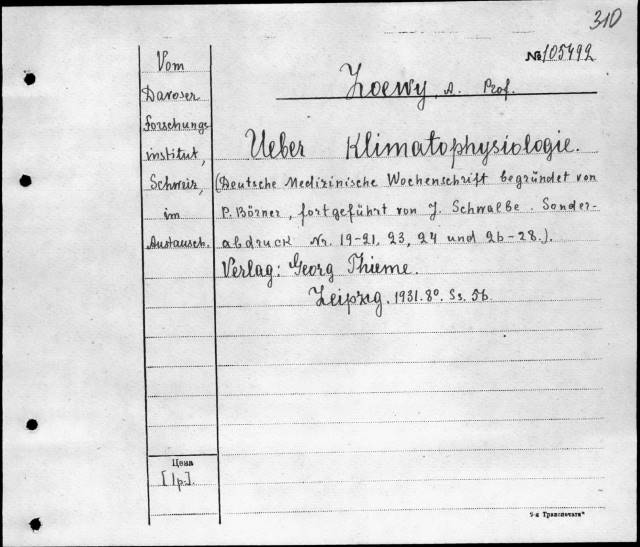 310
№105492
Vom
Davoser
Forschungs
institut,
Schweiz,
im
Austausch.
Loewy, A. Prof.
Ueber Klimatophysiologie.
(Deutsche Medizinische Wochenschrift begründet von
P. Börner, fortgeführt von J. Schwalbe. Sonder-
abdruck Nr. 19-21, 23, 24 und 26-28.).
Verlag: Georg Thieme.
Leipzig. 1931. 8°. Ss. 56.
Цена
[1р.].
Транспечать"